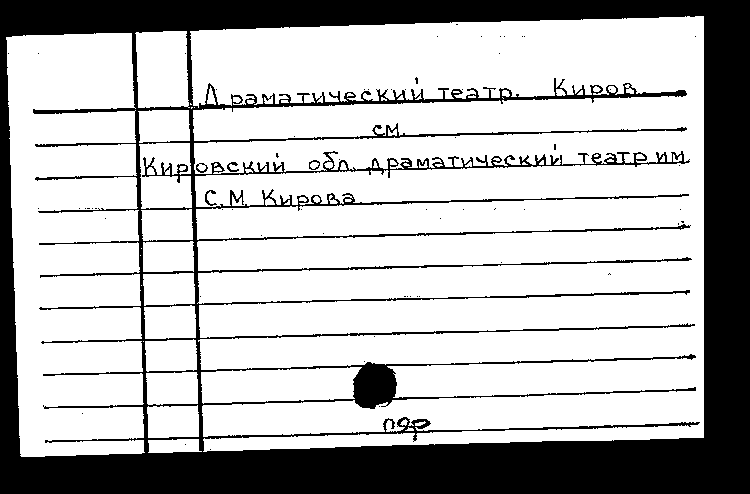 Драматический театр. Киров.
см.
Кировский обл. драматический театр им.
С.М. Кирова